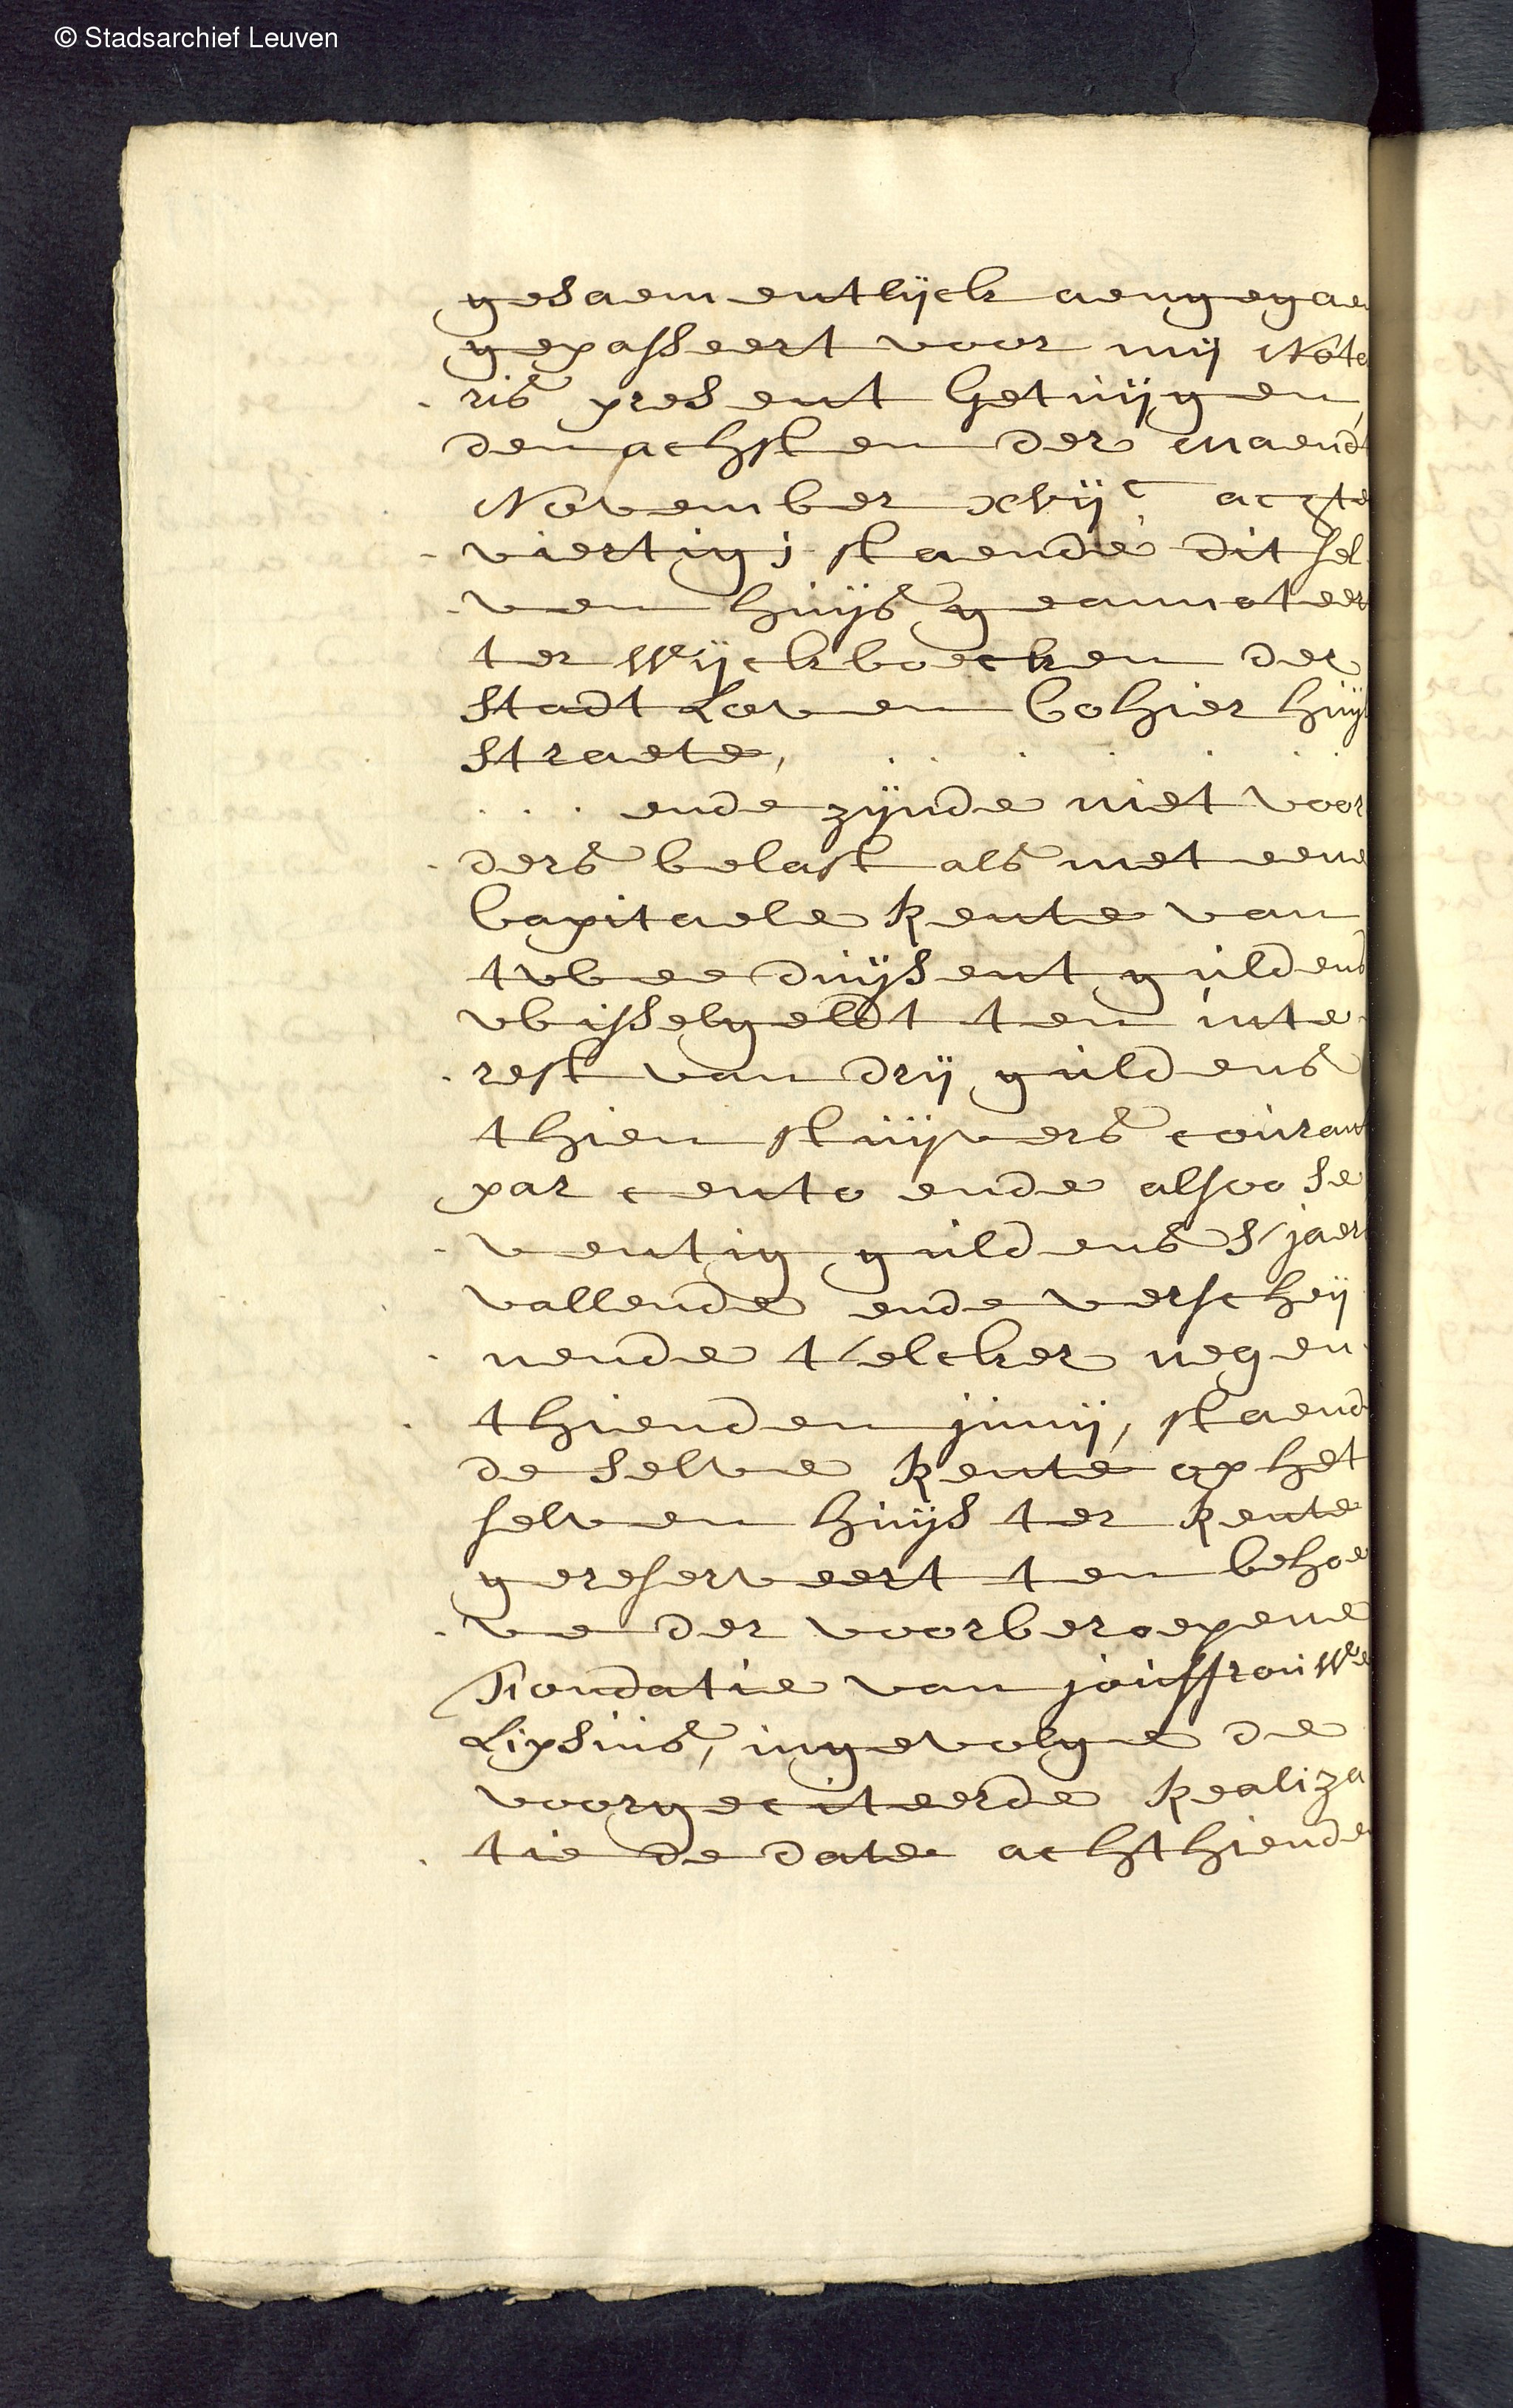 © Stadsarchief Leuven
gesaementlijck aengegae
gepasseert voor mij Nota
ris present getuijgen,
den achsten der maend
November xvijc achte
viertig; staende dit sel
ven huijs geannoteer
ter Wijckboecken der
Stadt Loven Cohier huij
straete,
ende zijnde niet voor
ders belast als met eene
Capitaele Rente van
twee duijsent guldens
wisselgeldt ten inte
rest van drij guldens
thien stuijvers courant
par cento ende alsoo se
ventig guldens s'jaers
vallende ende verscheij
nende t'elcker negen
thienden junij, staend
de selve Rente op het
selven huijs ter Rente
gereserveert ten behoe
ve der voorberoepene
Fondatie van jouffrouwe
Lipsius, ingevolge de
voorgeciteerde Realiza
tie de date achthiende